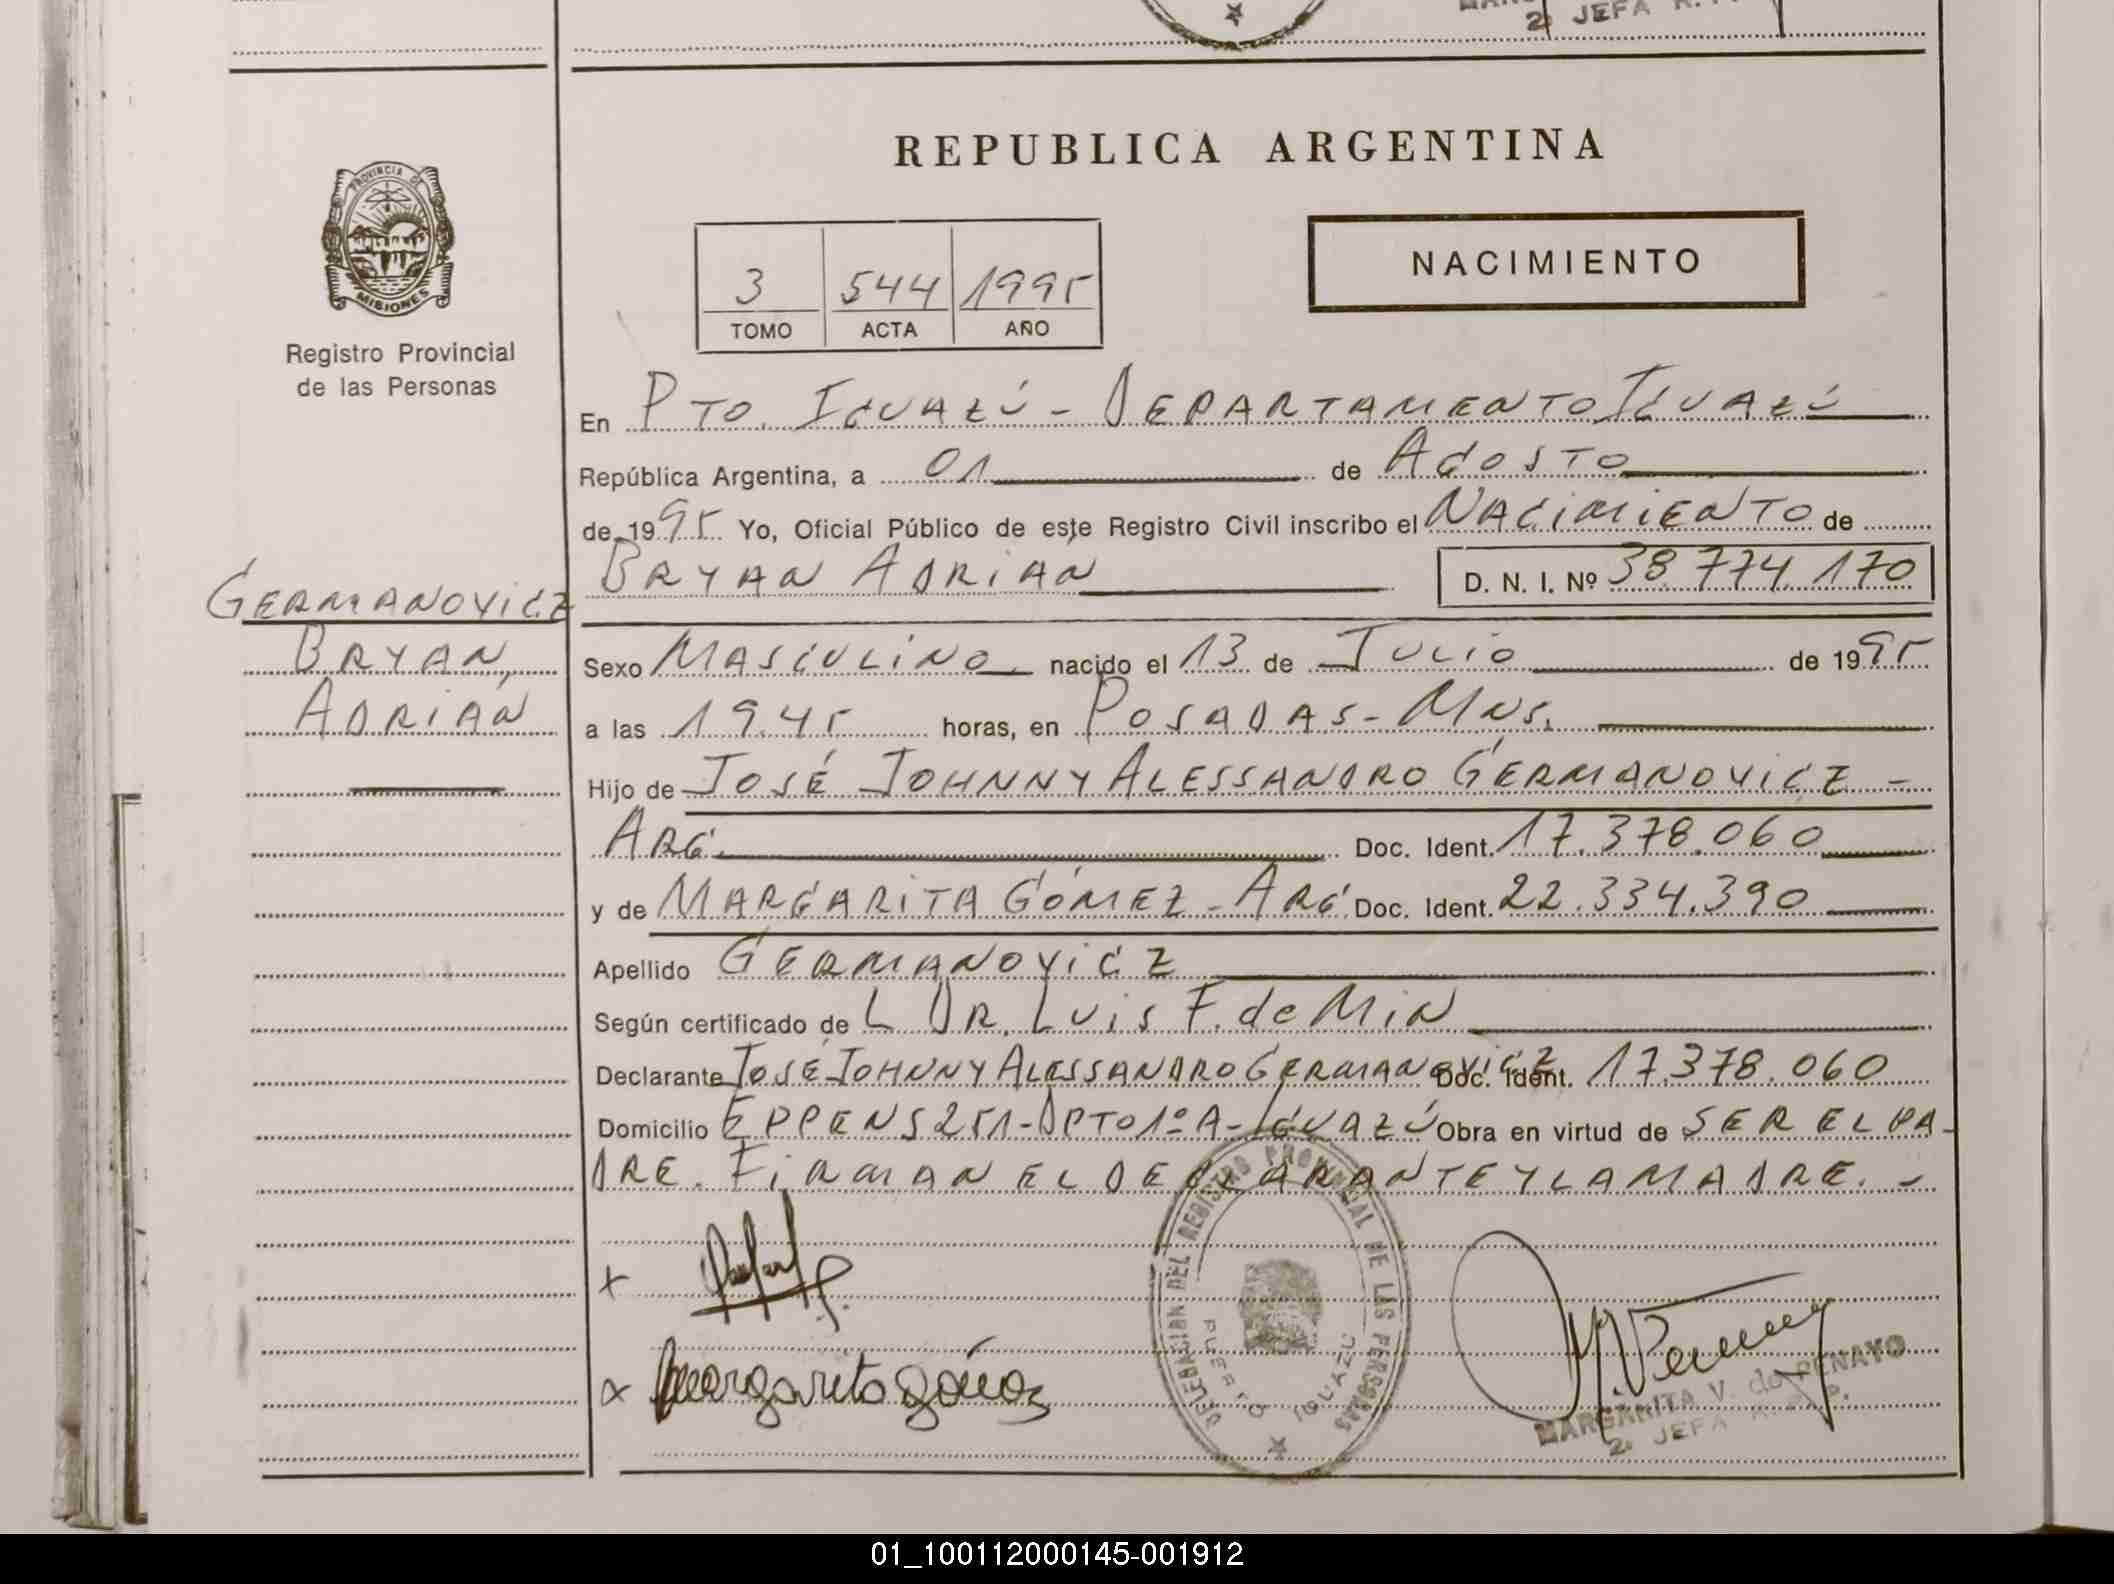 2º JEFA R.
REPUBLICA ARGENTINA
PROVINCIA DE
MISIONES
Registro Provincial
de las Personas
NACIMIENTO
3 544 1995
TOMO ACTA AÑO
En PTO. IGUAZÚ - DEPARTAMENTO IGUAZÚ
República Argentina, a 01 de AGOSTO
de 1995 Yo, Oficial Público de este Registro Civil inscribo el NACIMIENTO de
BRYAN ADRIÁN D. N. I. Nº 38.774.170
GERMANOVICZ
BRYAN,
ADRIÁN
Sexo MASCULINO. nacido el 13 de JULIO de 1995
a las 19.45 horas, en POSADAS - MNS.
Hijo de JOSÉ JOHNNY ALESSANDRO GERMANOVICZ -
ARG. Doc. Ident. 17.378.060
y de MARGARITA GÓMEZ - ARG. Doc. Ident. 22.334.390
Apellido GERMANOVICZ
Según certificado de L DR. LUIS F. de MIN
Declarante JOSÉ JOHNNY ALESSANDRO GERMANOVICZ Doc. Ident. 17.378.060
Domicilio EPPENS 251 - DPTO 1º A - IGUAZÚ Obra en virtud de SER EL PA-
DRE. FIRMAN EL DECLARANTE Y LA MADRE. -
DELEGACION DEL REGISTRO PROVINCIAL DE LAS PERSONAS
PUERTO IGUAZU
Margarita Gómez
MARGARITA V. de PENAYO
2º JEFA R. P. P.
01_100112000145-001912